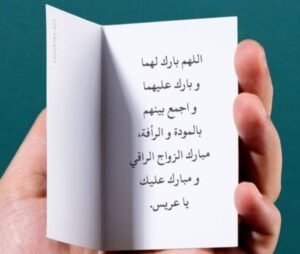 اللهم بارك لهما
و بارك عليهما
و اجمع بينهم
بالمودة و الرأفة،
مبارك الزواج الراقي
و مبارك عليك
يا عريس.